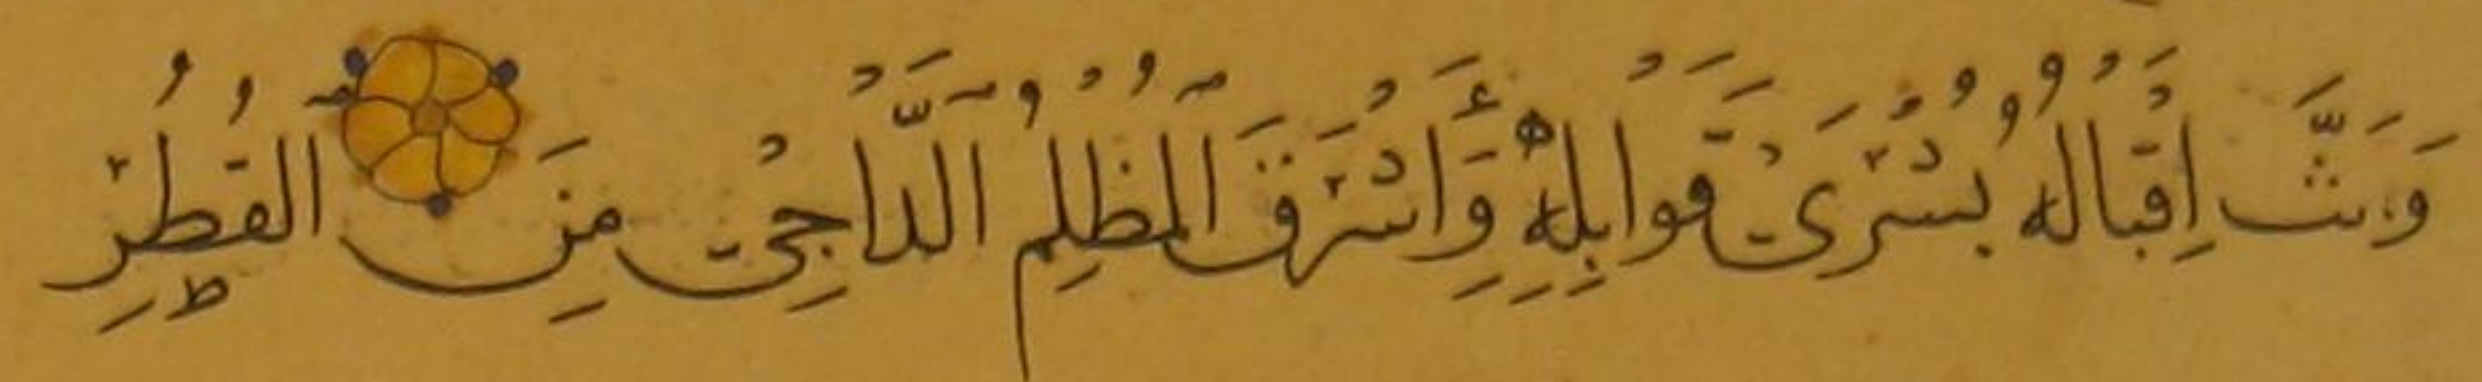 وَبَثَّ اِقْبَالُهُ بُشْرَىٰ قَوَابِلِهِ وَأَشْرَقَ الْمُظْلِمُ الدَّاجِيْ مِنَ الْقُطُرِ